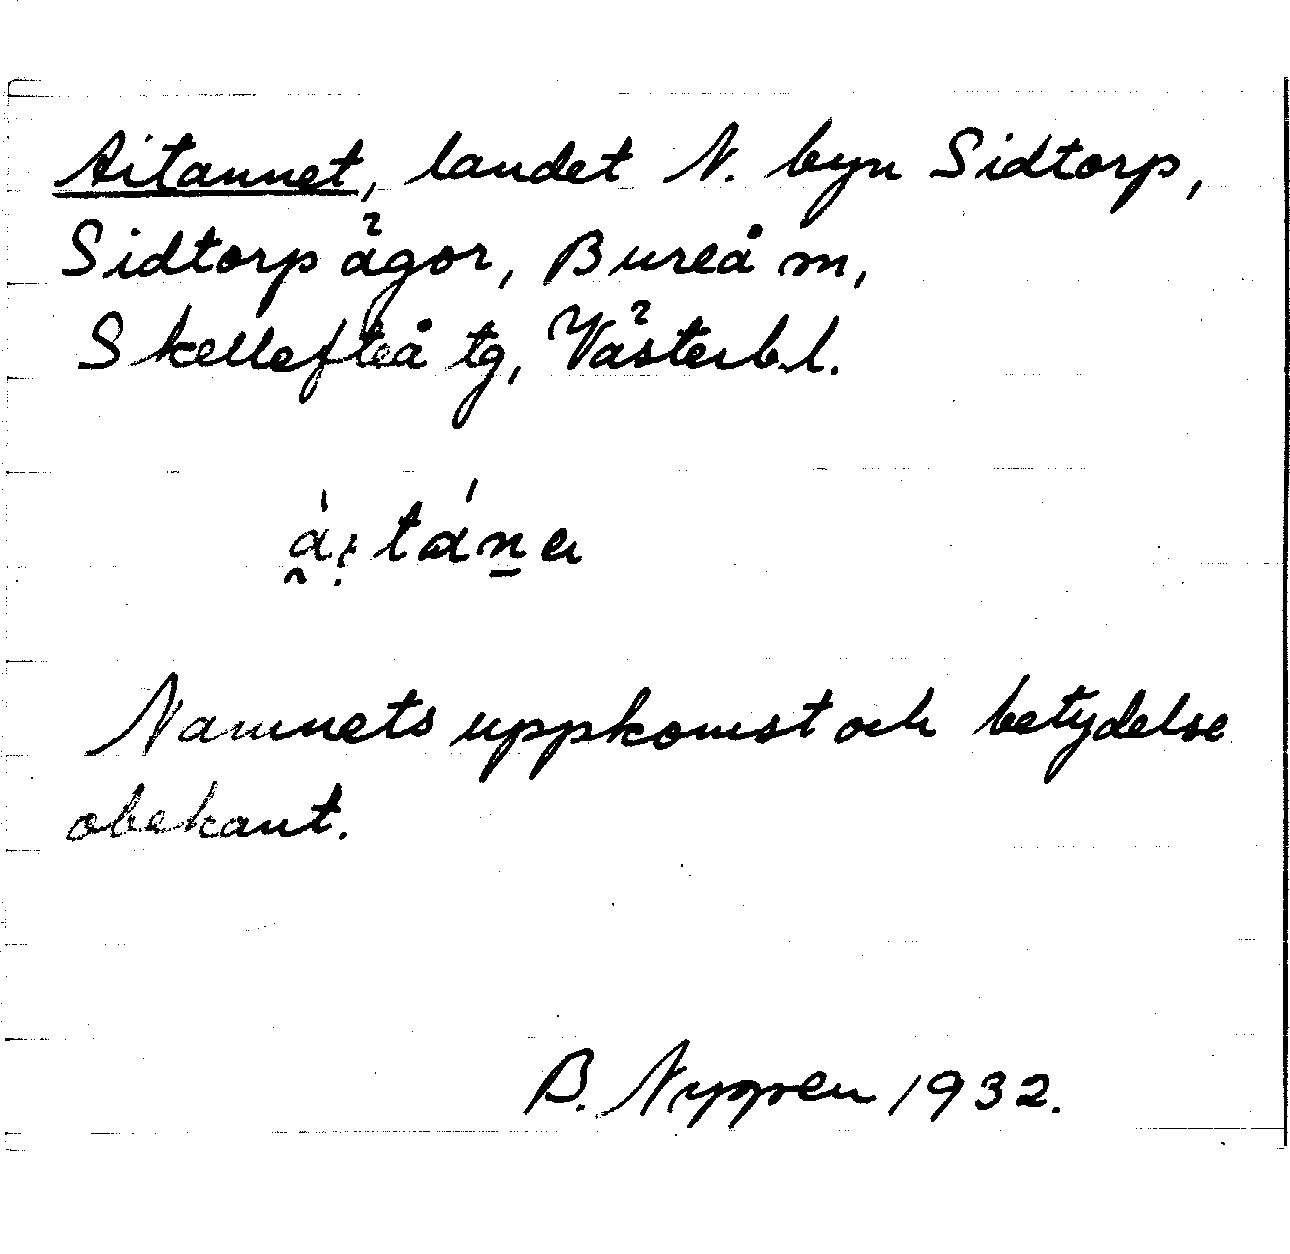 Aitannet, landet N. byn Sidtorp,
Sidtorp ägor, Bureå sn,
Skellefteå tg, Västerb.l.
Namnets uppkomst och betydelse
obekant.
B. Nygren 1932.